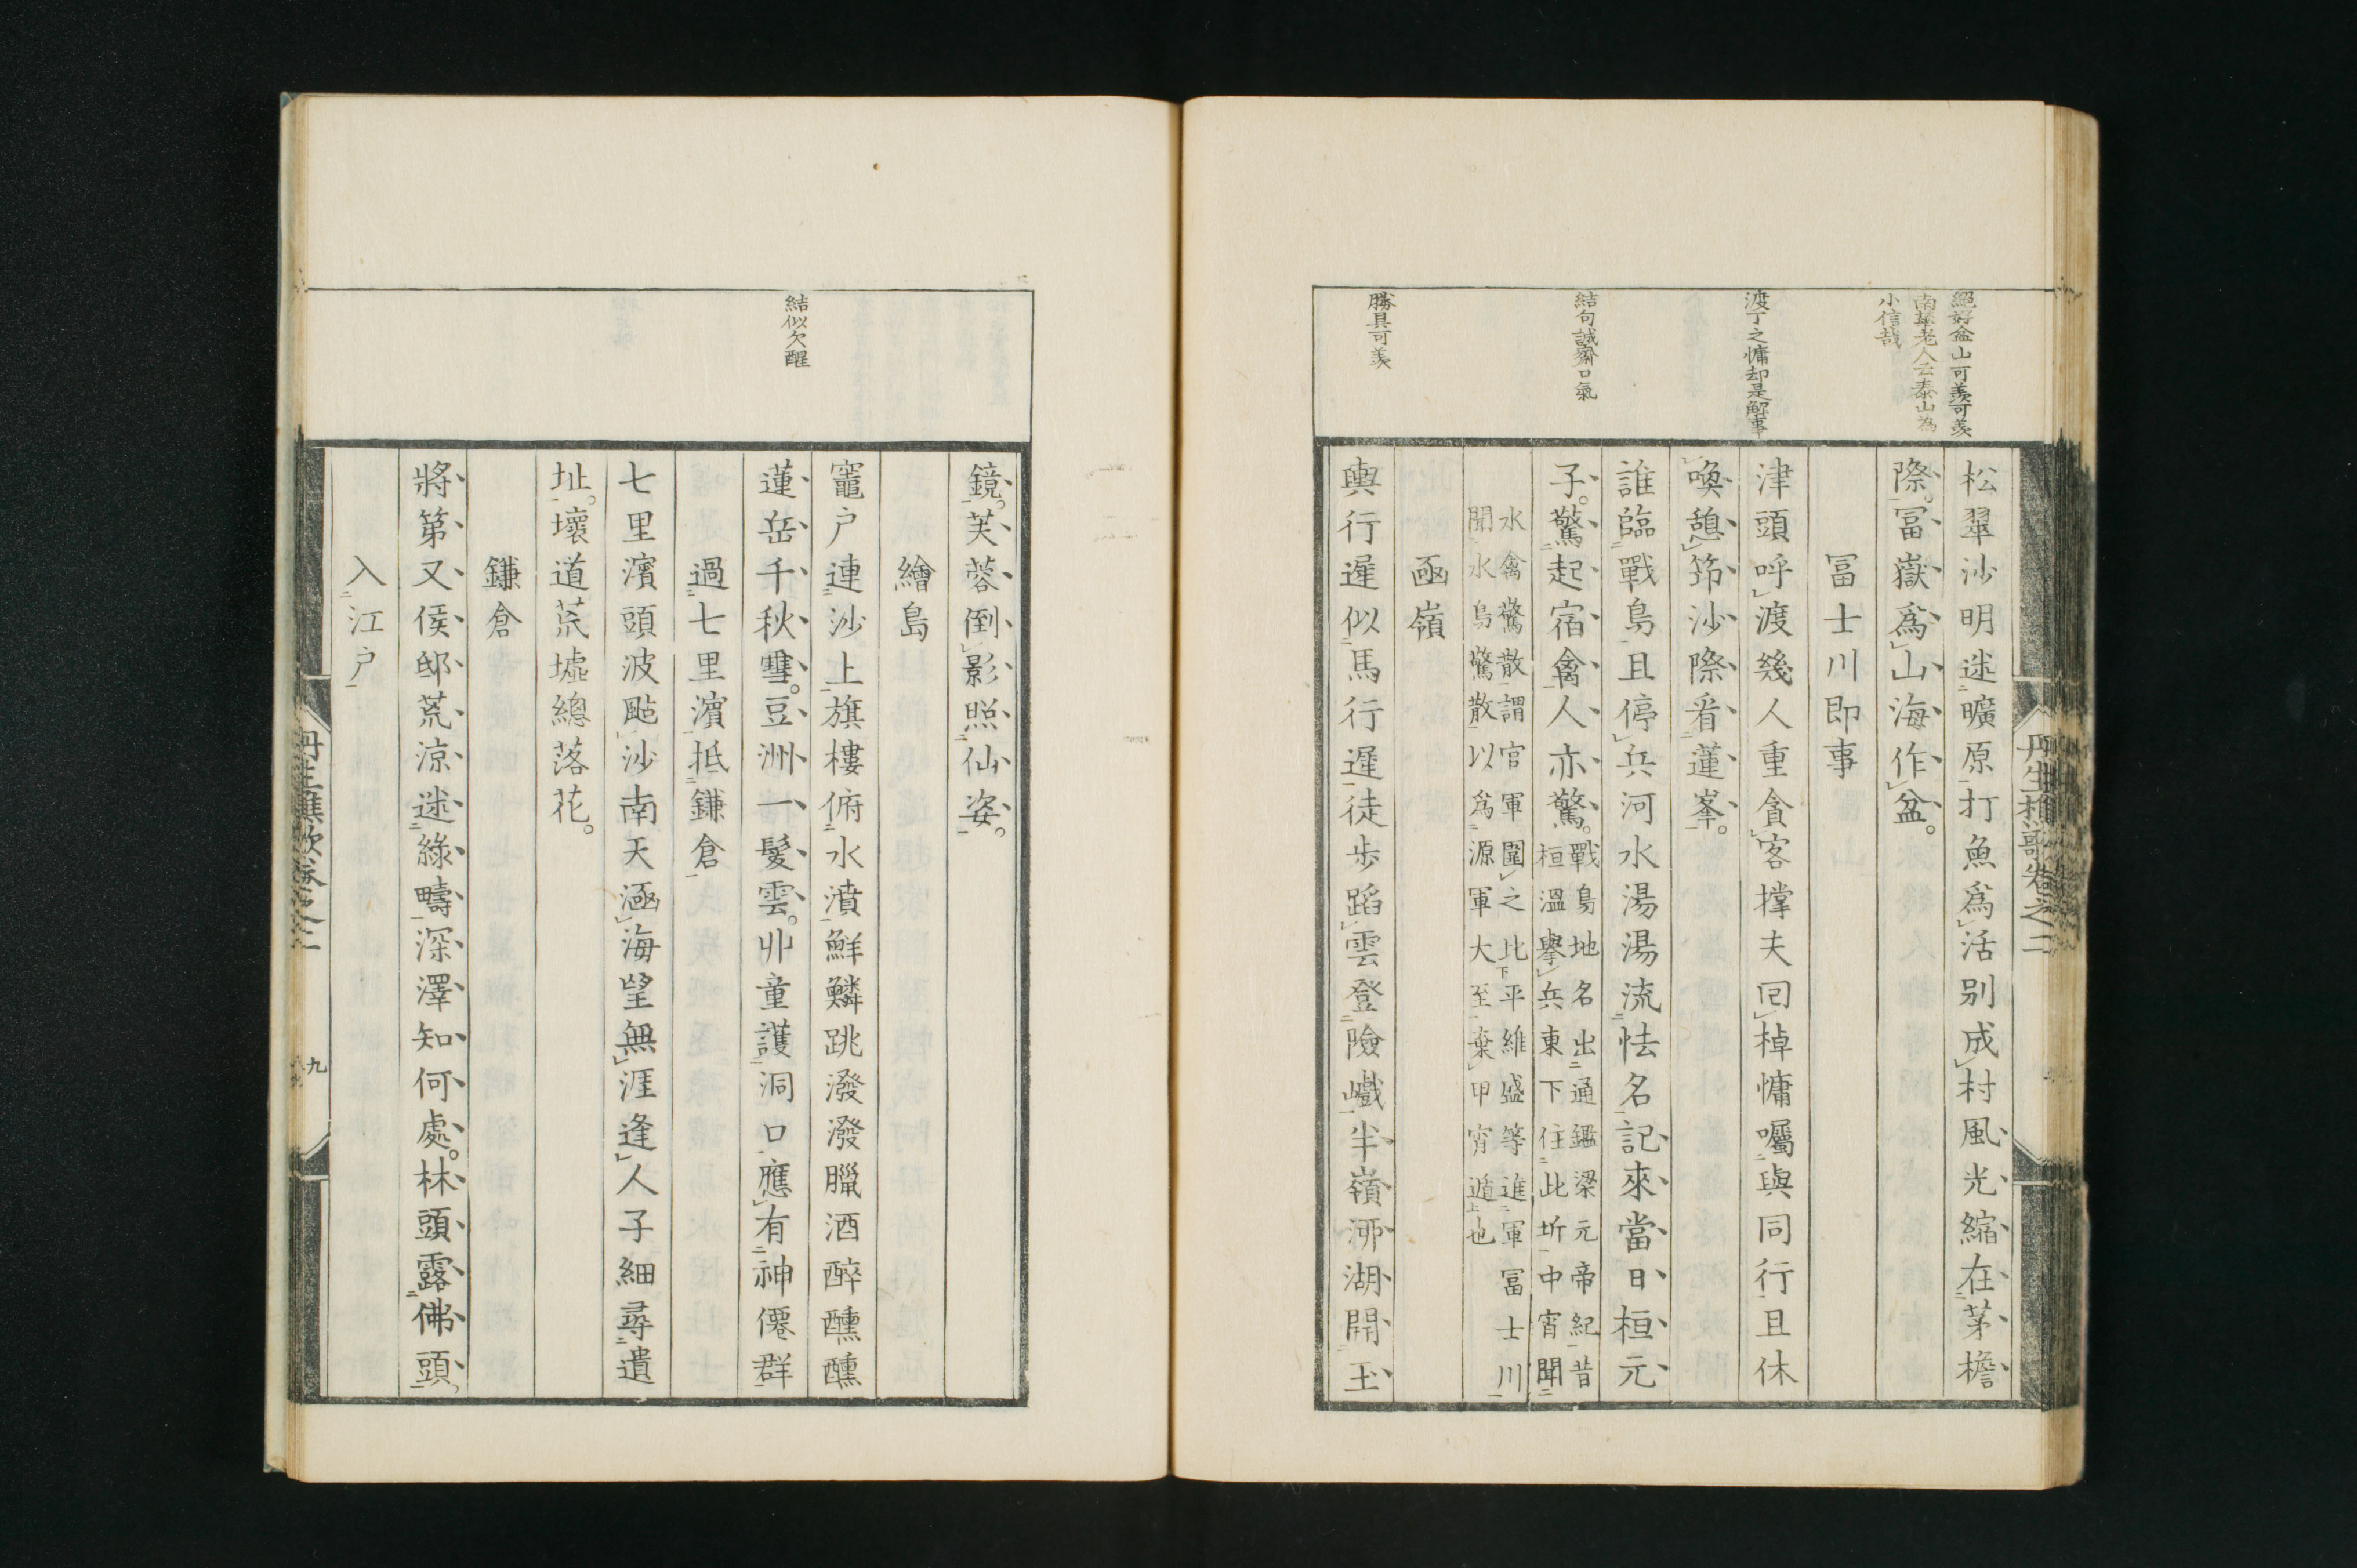 絕好盆山可羨可羨
南華老人云泰山為
小信哉
渡丁之慵却是解事
結句誠齋口氣
勝具可羨
丹生樵歌卷之二
松翠沙明迷曠原打魚爲活別成村風光縮在茅檐
際。冨嶽爲山海作盆。
冨士川即事
津頭呼渡幾人重貪客撑夫回棹慵囑與同行且休
喚憩筇沙際看蓮峯。
誰臨戰島且停兵河水湯湯流怯名記來當日桓元
子。驚起宿禽人亦驚。
戰島地名出通鑑梁元帝紀昔
桓溫擧兵東下住此圻中宵聞
水禽驚散謂官軍圍之比平維盛等進軍冨士川
聞水鳥驚散以爲源軍大至棄甲宵遁也
凾嶺
輿行遲似馬行遲徒步蹈雲登險巇半嶺泖湖開玉
結似欠醒
鏡。芙蓉倒影照仙姿。
繪島
竈戶連沙上旗樓俯水濆鮮鱗跳潑潑臘酒醉醺醺
蓮岳千秋雪。豆洲一髮雲。丱童護洞口應有神僊群
過七里濱抵鎌倉
七里濱頭波颭沙南天涵海望無涯逢人子細尋遺
址。壞道荒墟總落花。
鎌倉
將第又侯邸荒凉迷綠疇深澤知何處。林頭露佛頭
入江戶
丹生樵歌卷之二
九